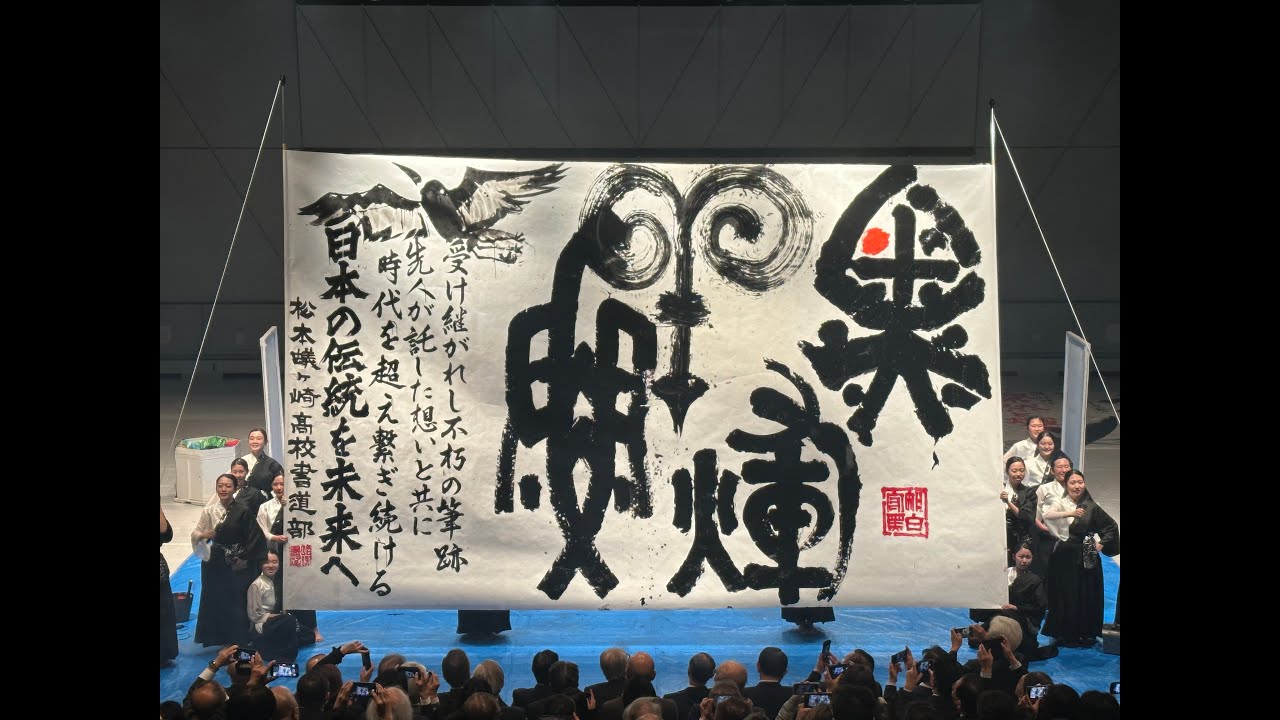 煇
受け継がれし不朽の筆跡
先人が託した想いと共に
時代を超え繋ぎ続ける
日本の伝統を未来へ
松本蟻ヶ崎高校書道部